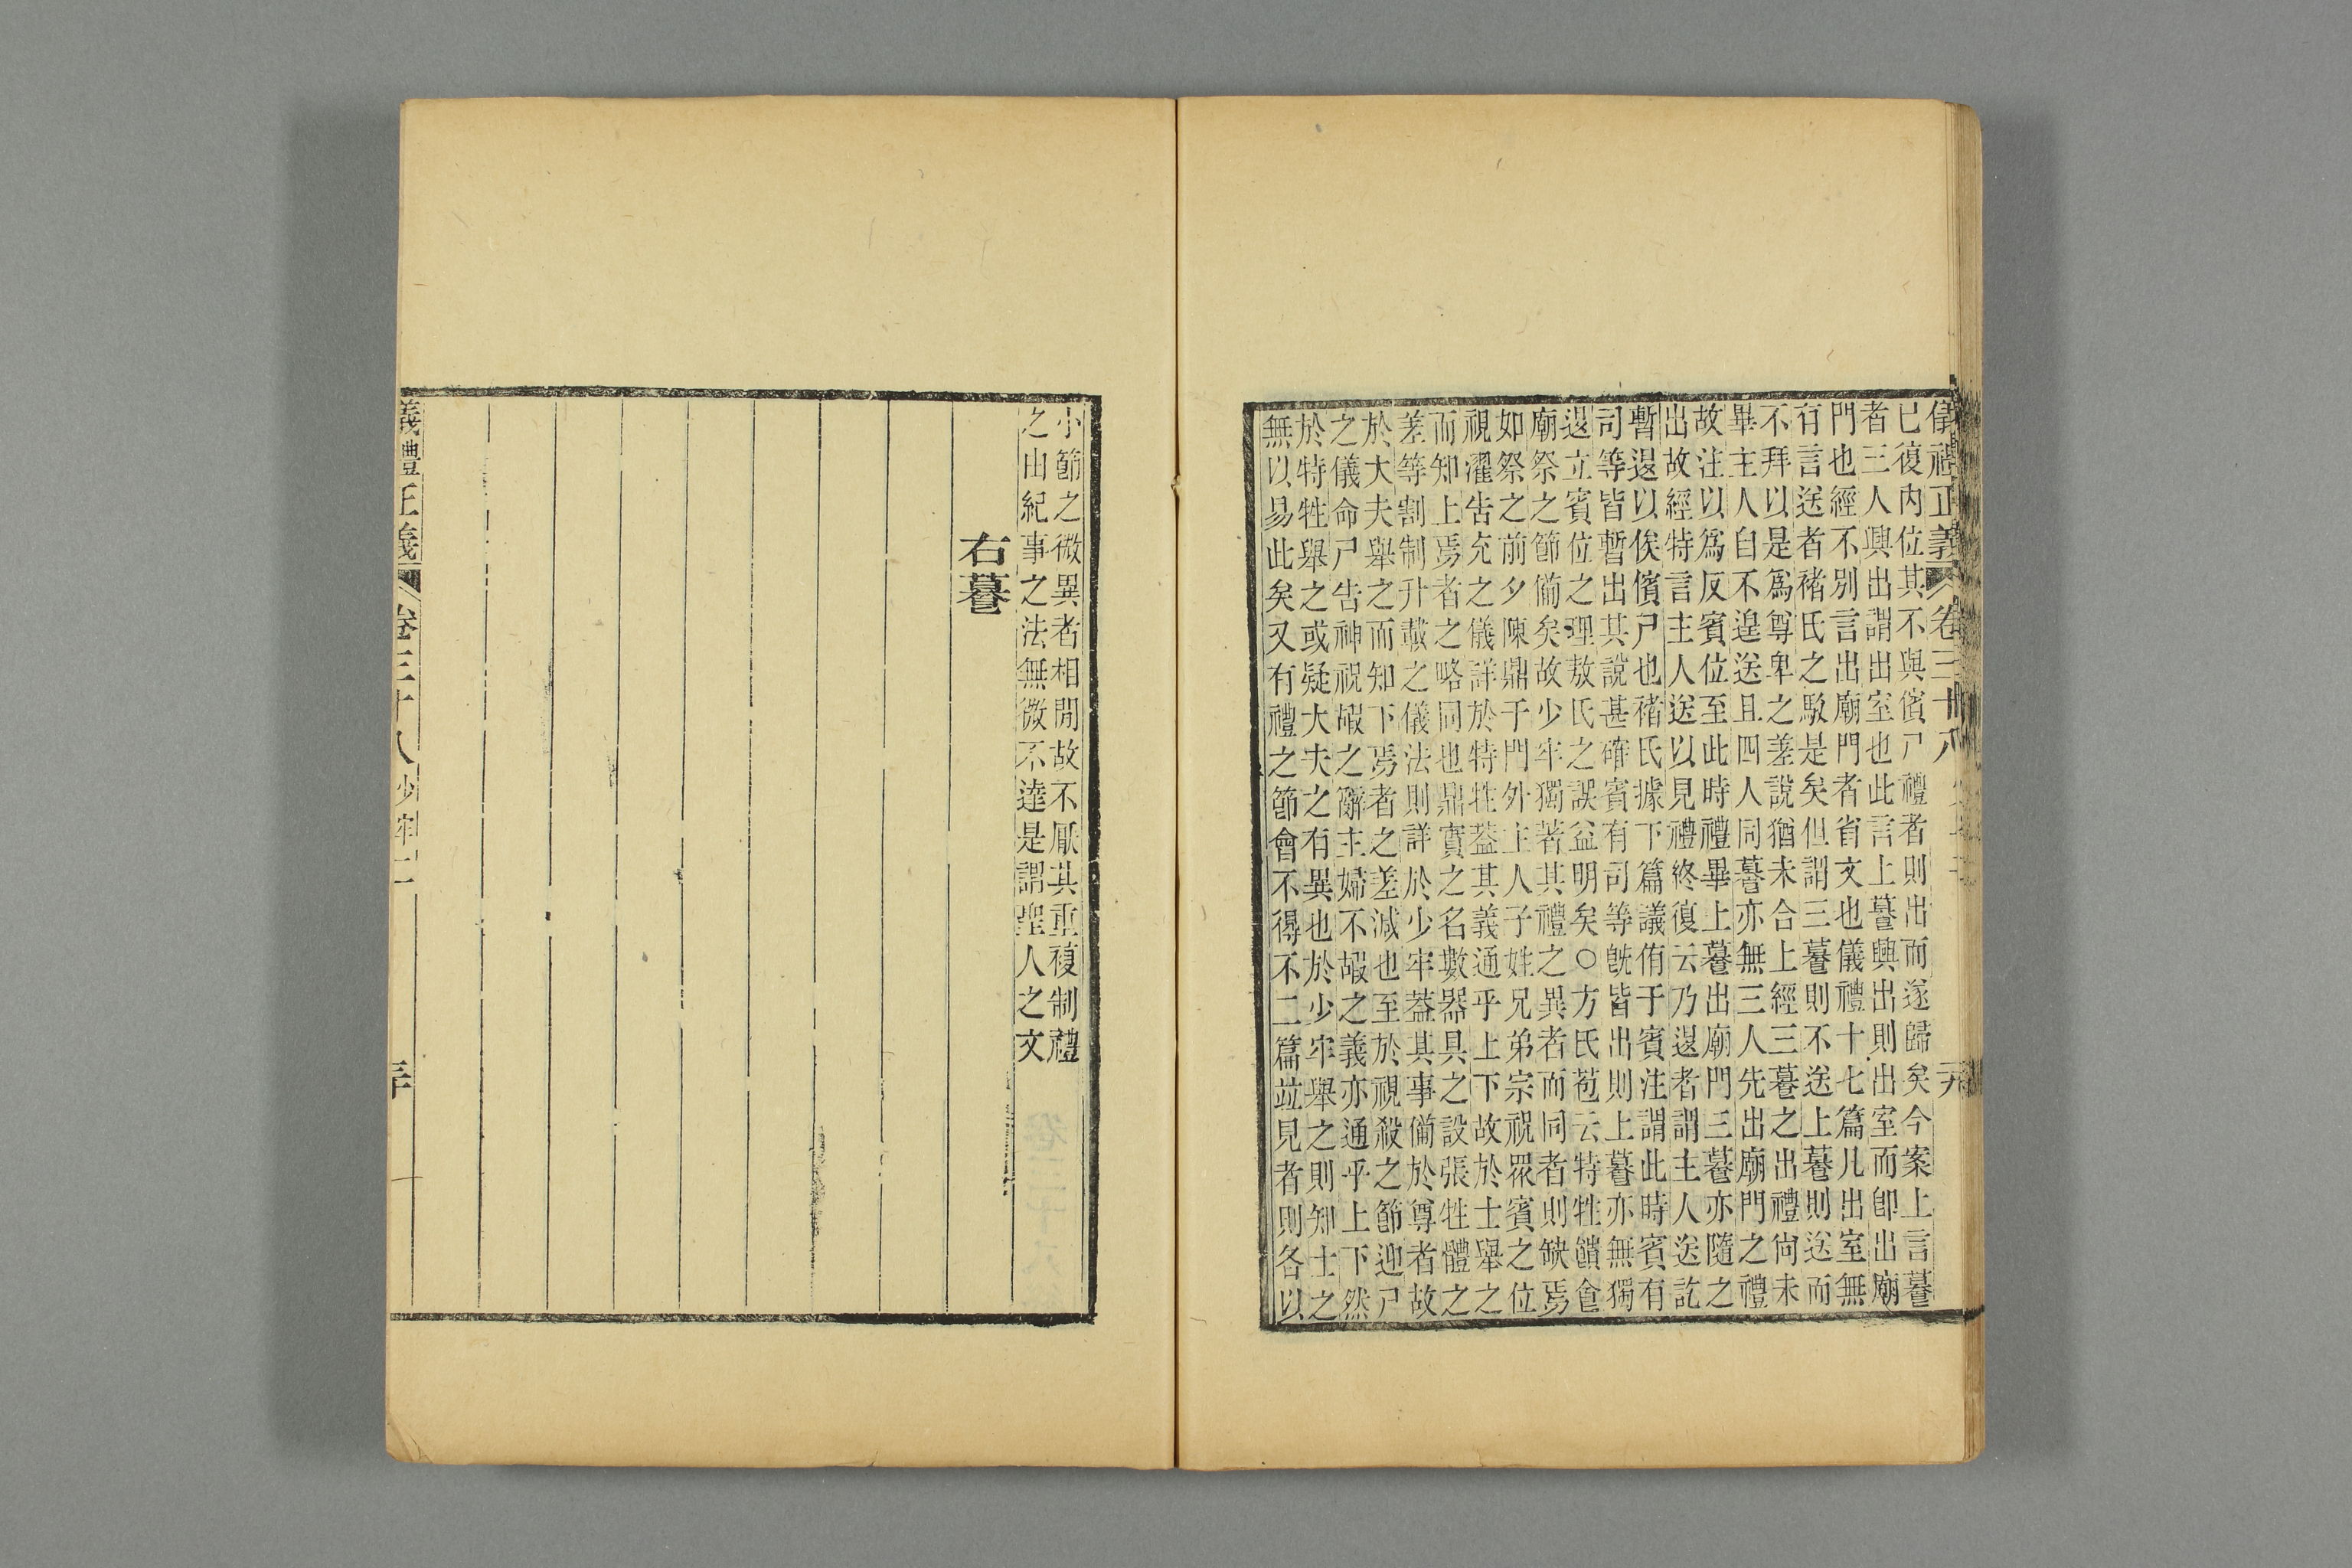 儀禮正義 卷三十八
已復內位其不與儐尸禮者則出而遂歸矣今案上言䉵
者三人興出謂出室也此言上䉵興出則出室而卽出廟
門也經不別言出廟門者省文也儀禮十七篇凡出室無
有言送者褚氏之駁是矣但謂三䉵則不送上䉵則送而
不拜以是爲尊卑之差說猶未合上經三䉵之出禮尙未
畢主人自不遑送且四人同䉵亦無三人先出廟門之禮
故注以爲反賓位至此時禮畢上䉵出廟門三䉵亦隨之
出故經特言主人送以見禮終復云乃退者謂主人送訖
暫退以俟儐尸也褚氏據下篇議侑于賓注謂此時賓有
司等皆暫出其說甚確賓有司等旣皆出則上䉵亦無獨
退立賓位之理敖氏之誤益明矣○方氏苞云特牲饋食
廟祭之節備矣故少牢獨著其禮之異者而同者則缺焉
如祭之前夕陳鼎于門外主人子姓兄弟宗祝眾賓之位
視濯告充之儀詳於特牲葢其義通乎上下故於士舉之
而知上焉者之略同也鼎實之名數器具之設張牲體之
差等割制升載之儀法則詳於少牢葢其事備於尊者故
於大夫舉之而知下焉者之差減也至於視殺之節迎尸
之儀命尸告神祝嘏之辭主婦不嘏之義亦通乎上下然
於特牲舉之或疑大夫之有異也於少牢舉之則知士之
無以易此矣又有禮之節會不得不二篇竝見者則各以
小節之微異者相閒故不厭其重複制禮
之由紀事之法無微不達是謂聖人之文
右䉵
儀禮正義 卷三十八少牢二 三十